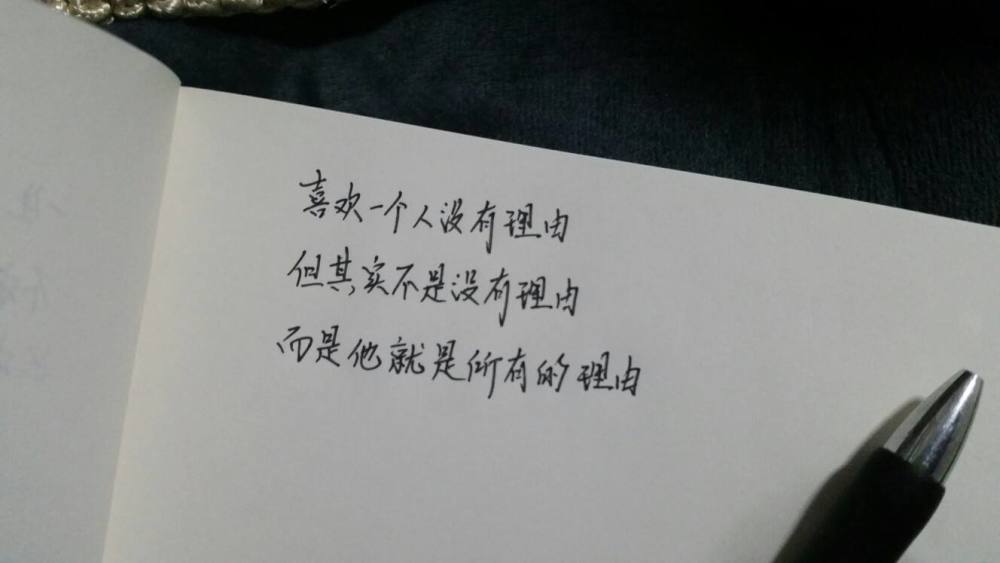 喜欢一个人没有理由
但其实不是没有理由
而是他就是所有的理由